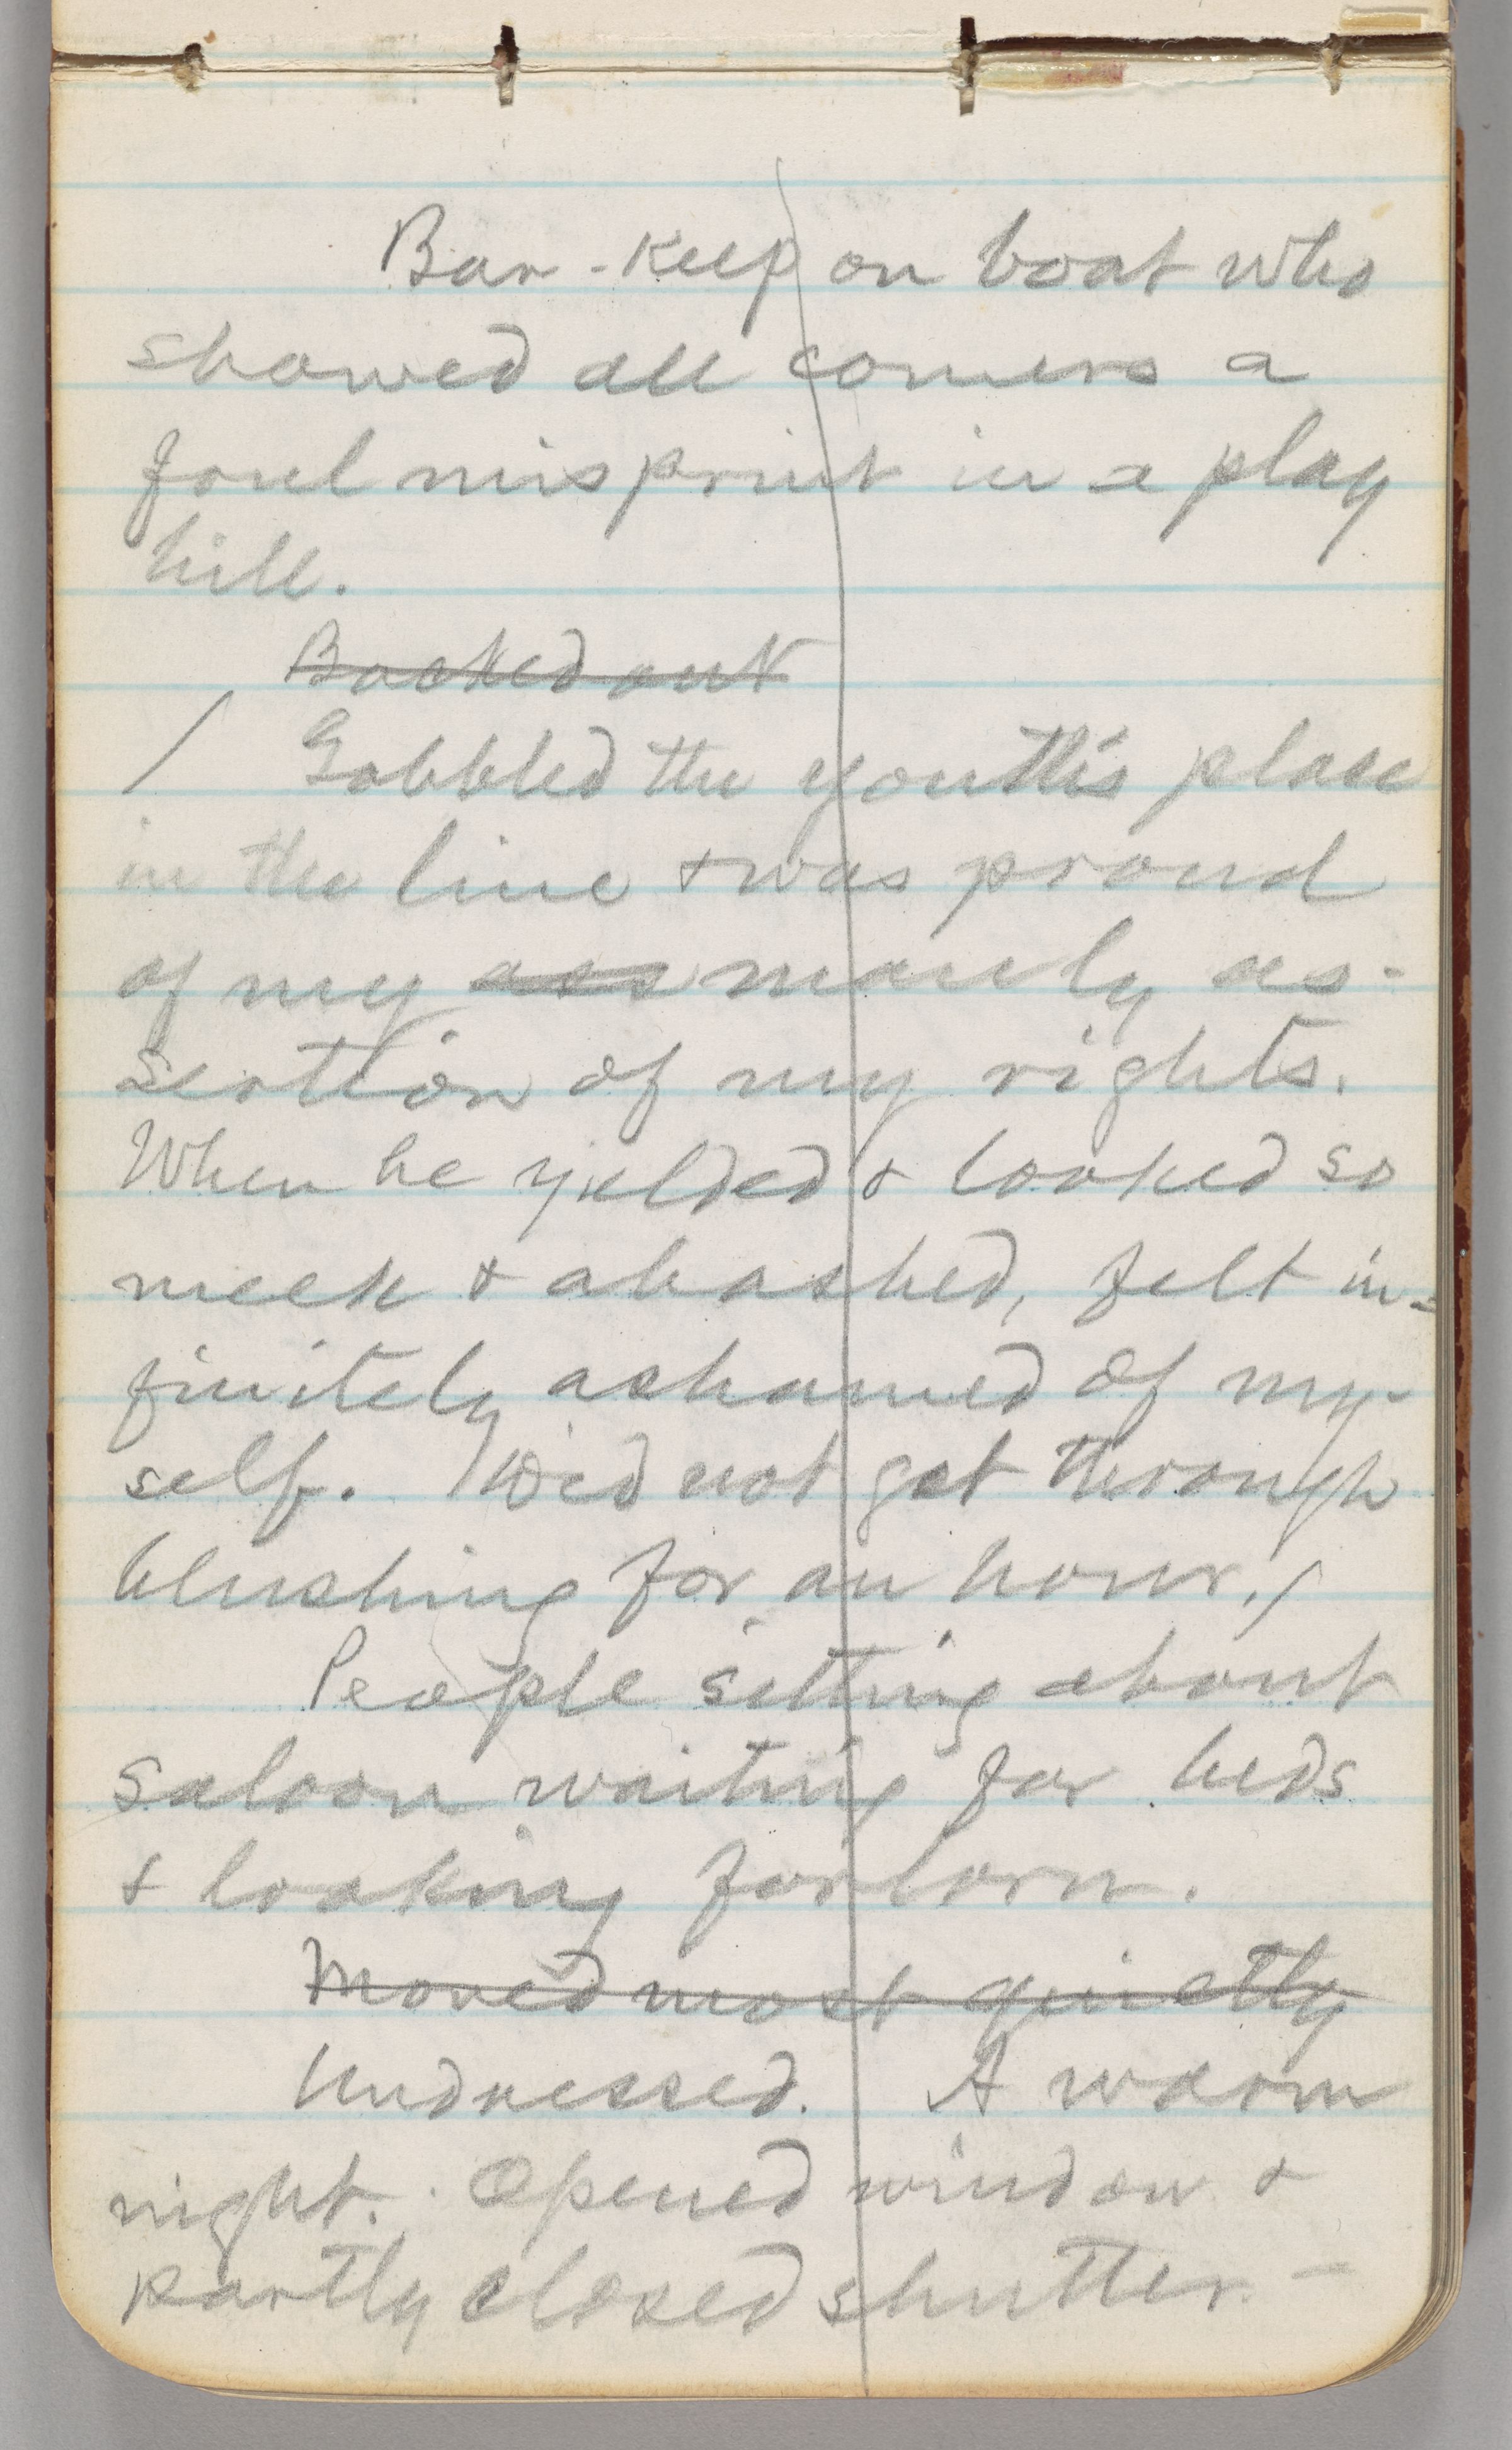 Bar-keep on boat who
showed all comers a
foul misprint in a play
bill.
Backed out
/ Gobbled the youth's place
in the line & was proud
of my ass manly as-
sertion of my rights.
When he yielded & looked so
meek & abashed, felt in-
finitely ashamed of my-
self. Did not get through
blushing for an hour./
People sitting about
saloon waiting for beds
& looking forlorn.
Moved most quietly
Undressed. A warm
night. Opened window &
partly closed shutter.—